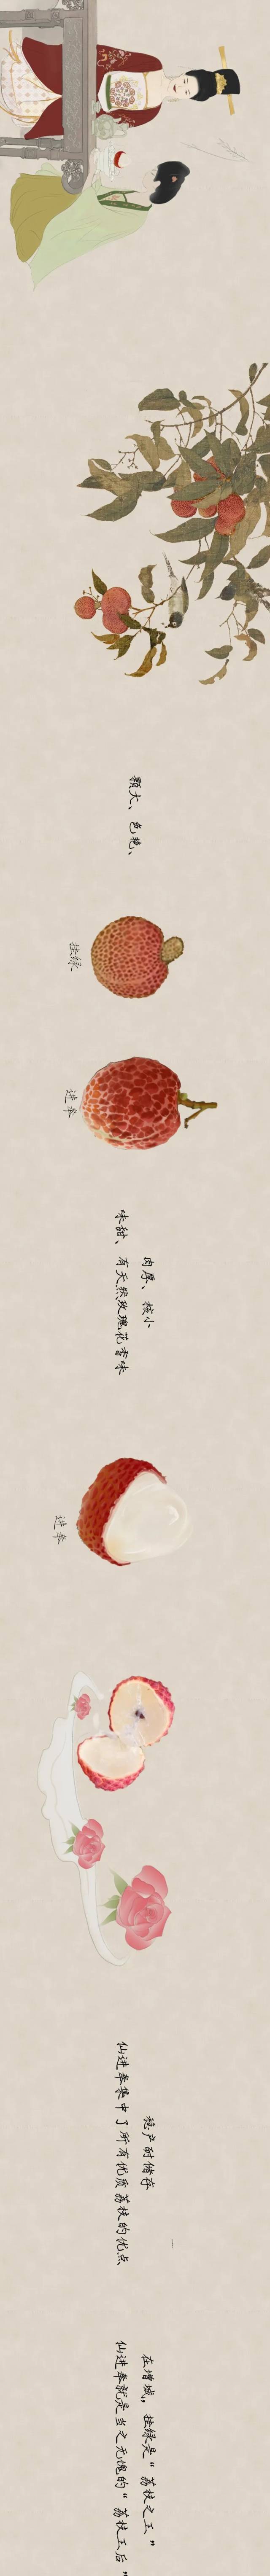 颗大、色艳、
挂绿
进奉
肉厚、核小
味甜、有天然玫瑰花香味
进奉
稳产耐储存
仙进奉集中了所有优质荔枝的优点
在增城，挂绿是“荔枝之王”
仙进奉就是当之无愧的“荔枝王后”